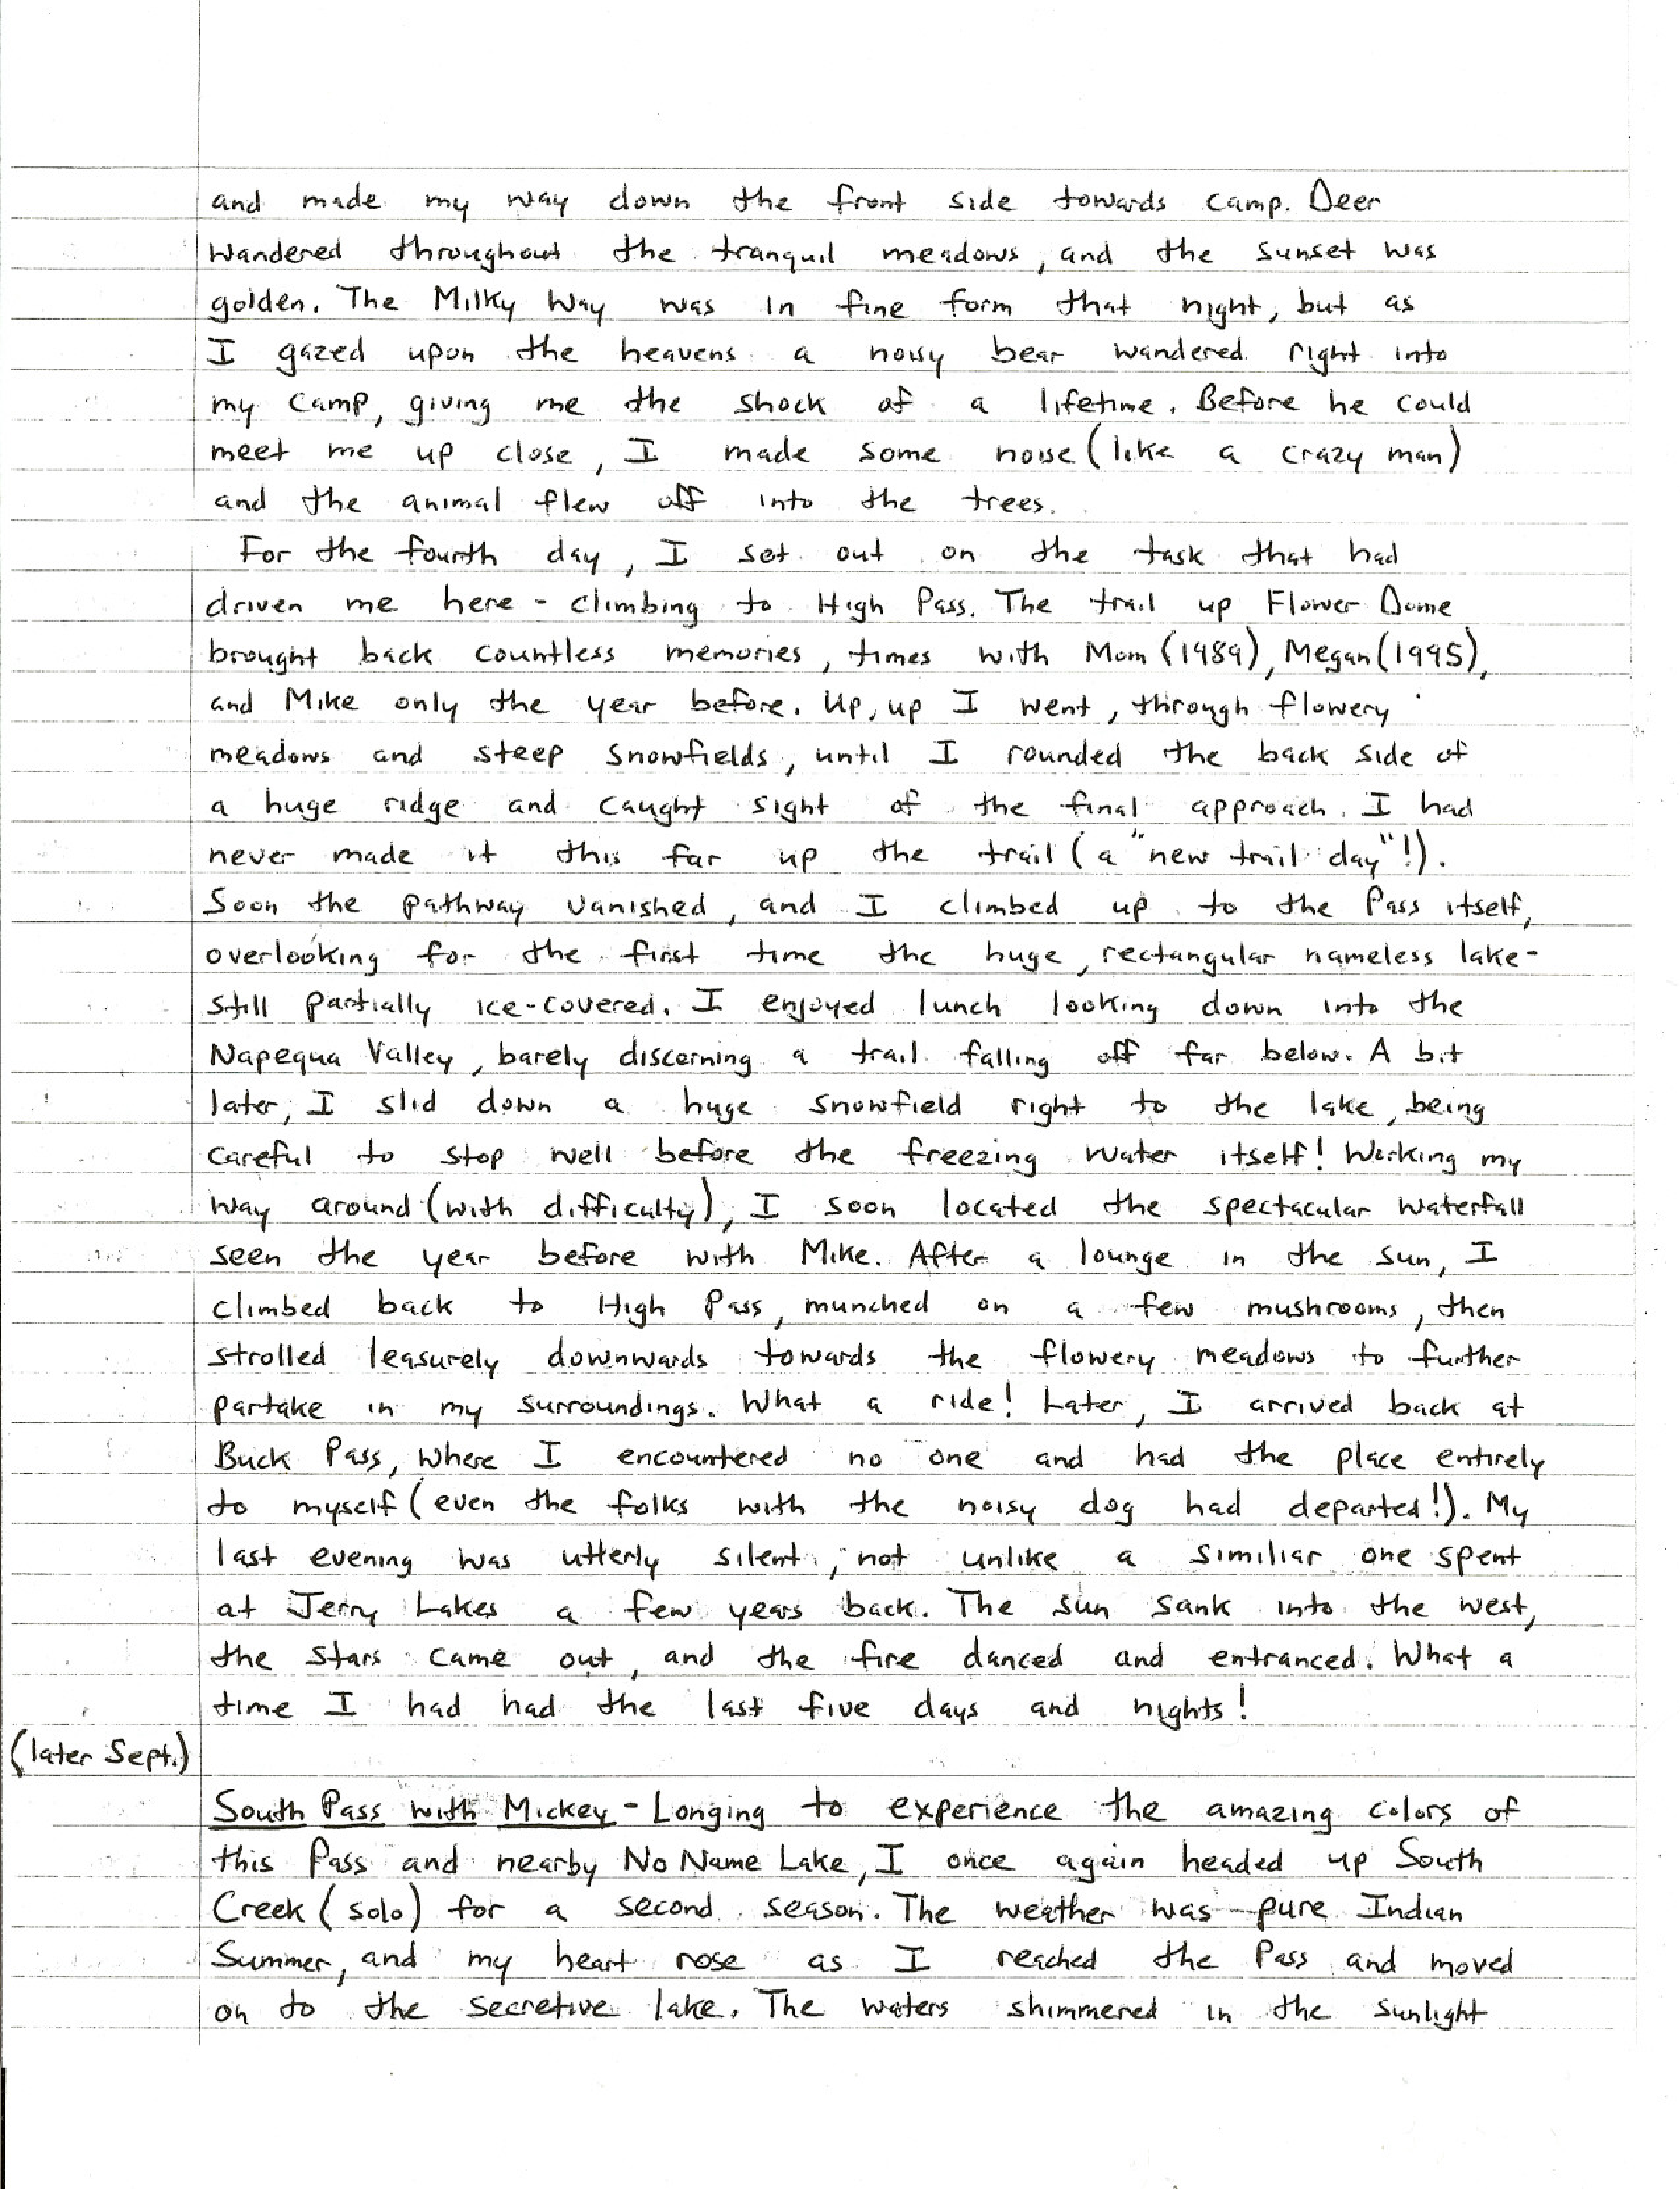 and made my way down the front side towards camp. Deer
wandered throughout the tranquil meadows, and the sunset was
golden. The Milky Way was in fine form that night, but as
I gazed upon the heavens a noisy bear wandered right into
my camp, giving me the shock of a lifetime. Before he could
meet me up close, I made some noise (like a crazy man)
and the animal flew off into the trees.
For the fourth day, I set out on the task that had
driven me here - climbing to High Pass. The trail up Flower Dome
brought back countless memories, times with Mom (1989), Megan (1995),
and Mike only the year before. Up, up I went, through flowery
meadows and steep snowfields, until I rounded the back side of
a huge ridge and caught sight of the final approach. I had
never made it this far up the trail (a "new trail day"!).
Soon the pathway vanished, and I climbed up to the Pass itself,
overlooking for the first time the huge, rectangular nameless lake-
still partially ice-covered. I enjoyed lunch looking down into the
Napequa Valley, barely discerning a trail falling off far below. A bit
later, I slid down a huge snowfield right to the lake, being
careful to stop well before the freezing water itself! Working my
way around (with difficulty), I soon located the spectacular waterfall
seen the year before with Mike. After a lounge in the sun, I
climbed back to High Pass, munched on a few mushrooms, then
strolled leasurely downwards towards the flowery meadows to further
partake in my surroundings. What a ride! Later, I arrived back at
Buck Pass, where I encountered no one and had the place entirely
to myself (even the folks with the noisy dog had departed!). My
last evening was utterly silent, not unlike a similiar one spent
at Jerry Lakes a few years back. The sun sank into the west,
the stars came out, and the fire danced and entranced. What a
time I had had the last five days and nights!
(later Sept.)
South Pass with Mickey - Longing to experience the amazing colors of
this Pass and nearby No Name Lake, I once again headed up South
Creek (solo) for a second season. The weather was pure Indian
Summer, and my heart rose as I reached the Pass and moved
on to the secretive lake. The waters shimmered in the sunlight